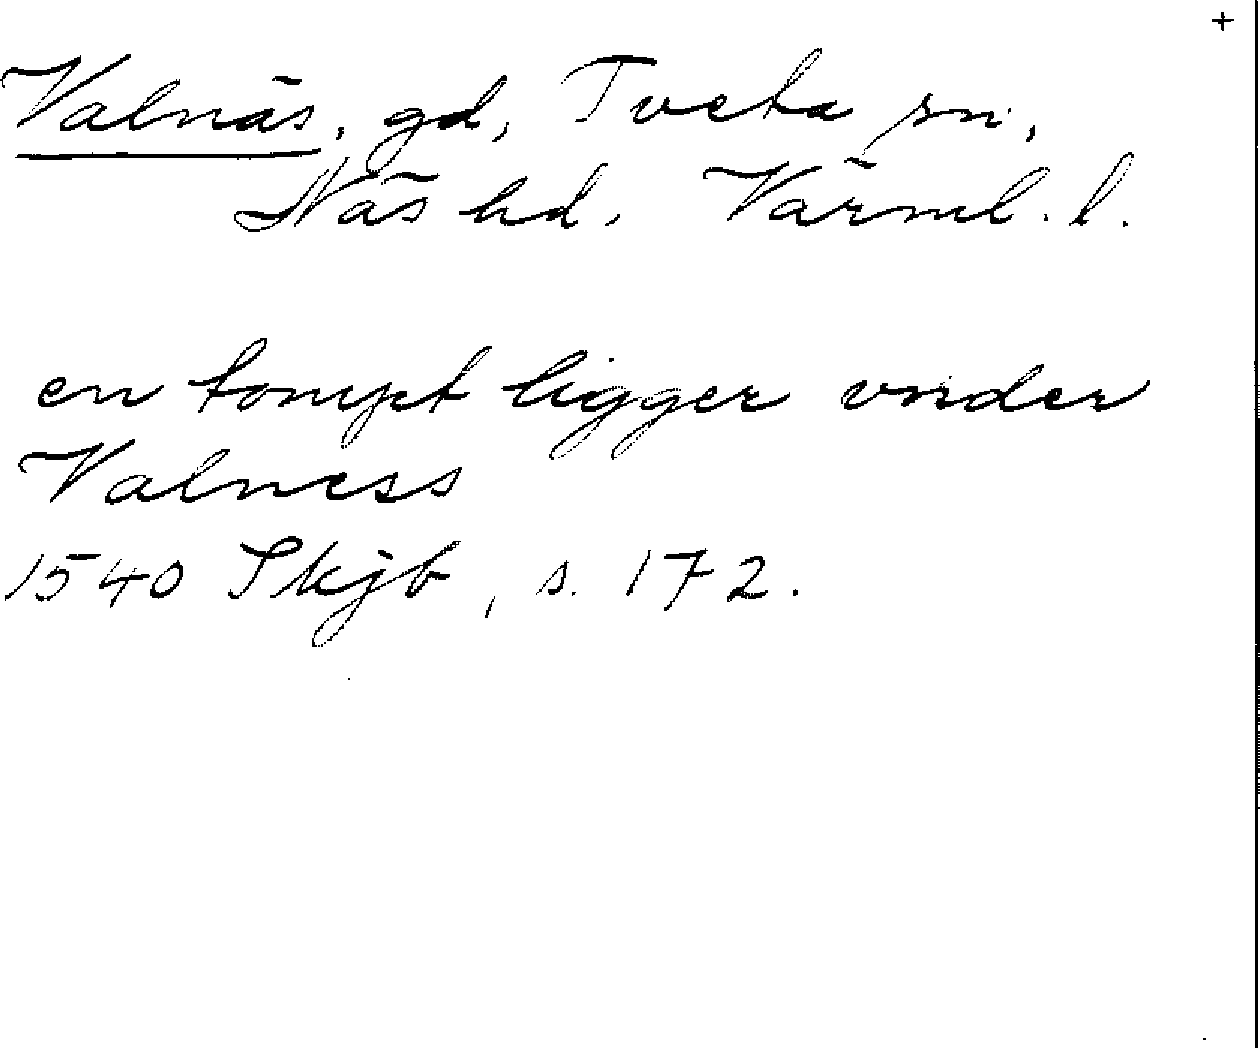 +
Valnäs, gd, Tveta sn,
Näs hd. Värml. l.
en tompt ligger vnder
Valness
1540 Skjb, s. 172.